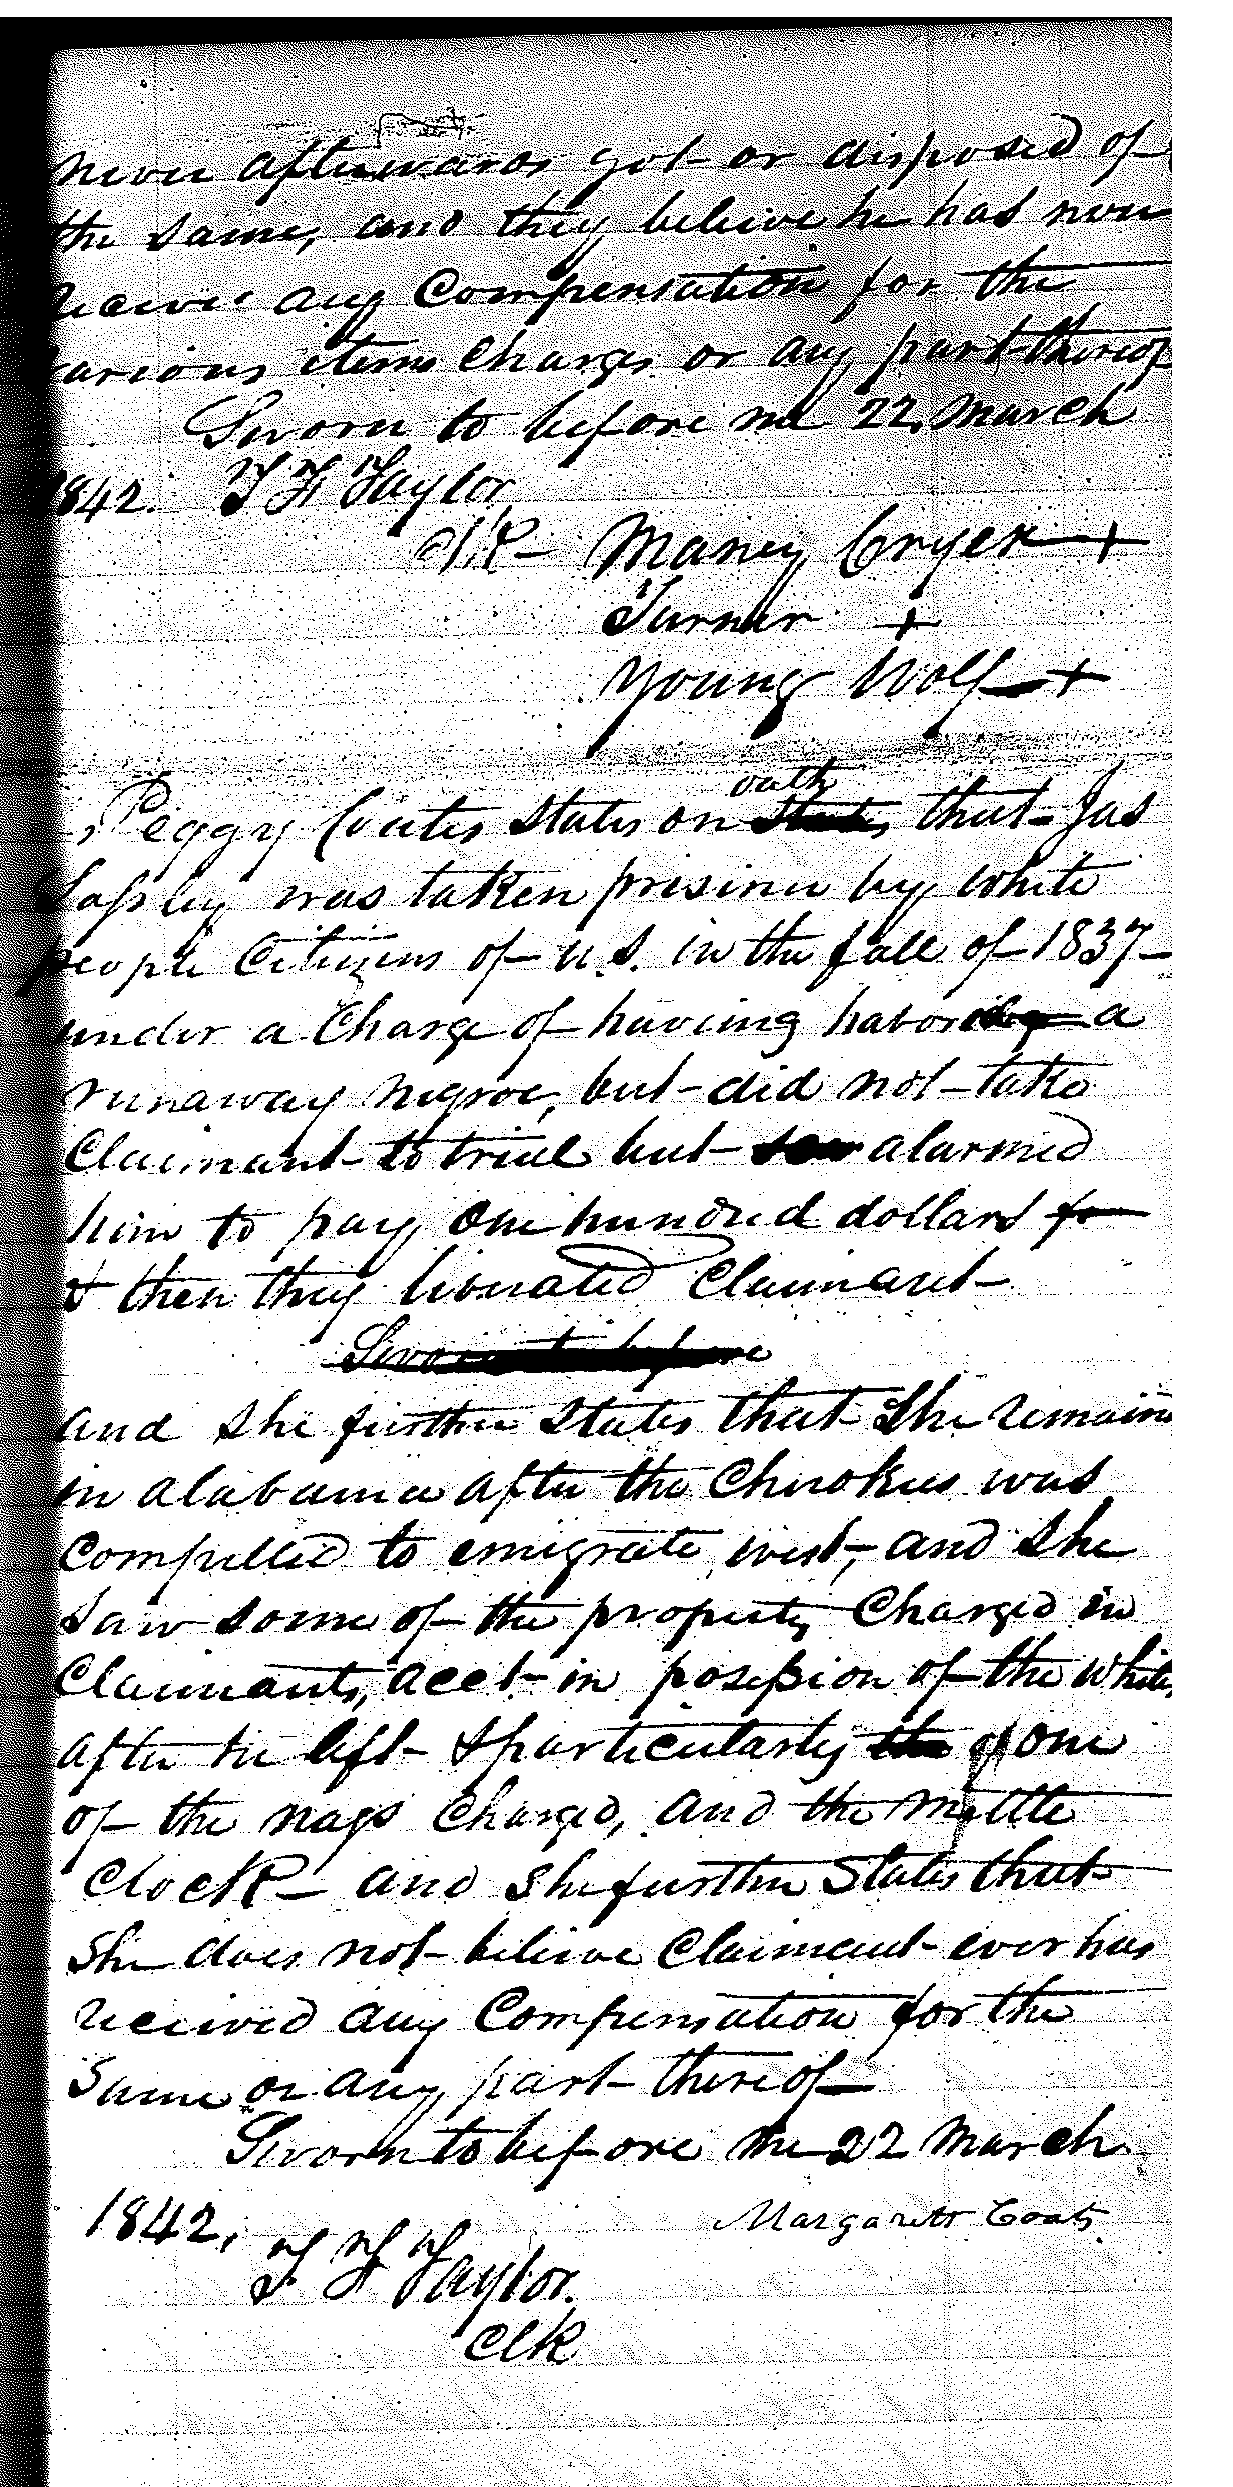 never afterwards got or disposed of
the same, and they believe he has never
receive any Compensation for the
various items Charges or any part thereof
Sworn to before me 22, March
1842. T F Taylor
Clk Maney Cryer +
Turner +
Young Wolf +
Peggy Coates States on oath that Jas
Lassley was taken prisiner by white
people Citizens of U.S. in the fall of 1837
under a Charge of having habored a
runaway negroe, but did not take
Claimant to trial but alarmed
him to pay one hundred dollars
& then they liberated Claimant
Sworn to before
and she further States that She remain
in alabama after the Cherokees was
Compelled to emigrate west, and she
saw some of the property Charged in
Claimants, acct in possession of the whites
after he left & particularly of one
of the nags Charged, and the mettle
Clock and she further States that
She does not believe Claimant ever has
received any Compensation for the
same or any part thereof
Sworn to before me 22 March
1842, Margarett Coats
T F Taylor.
Clk